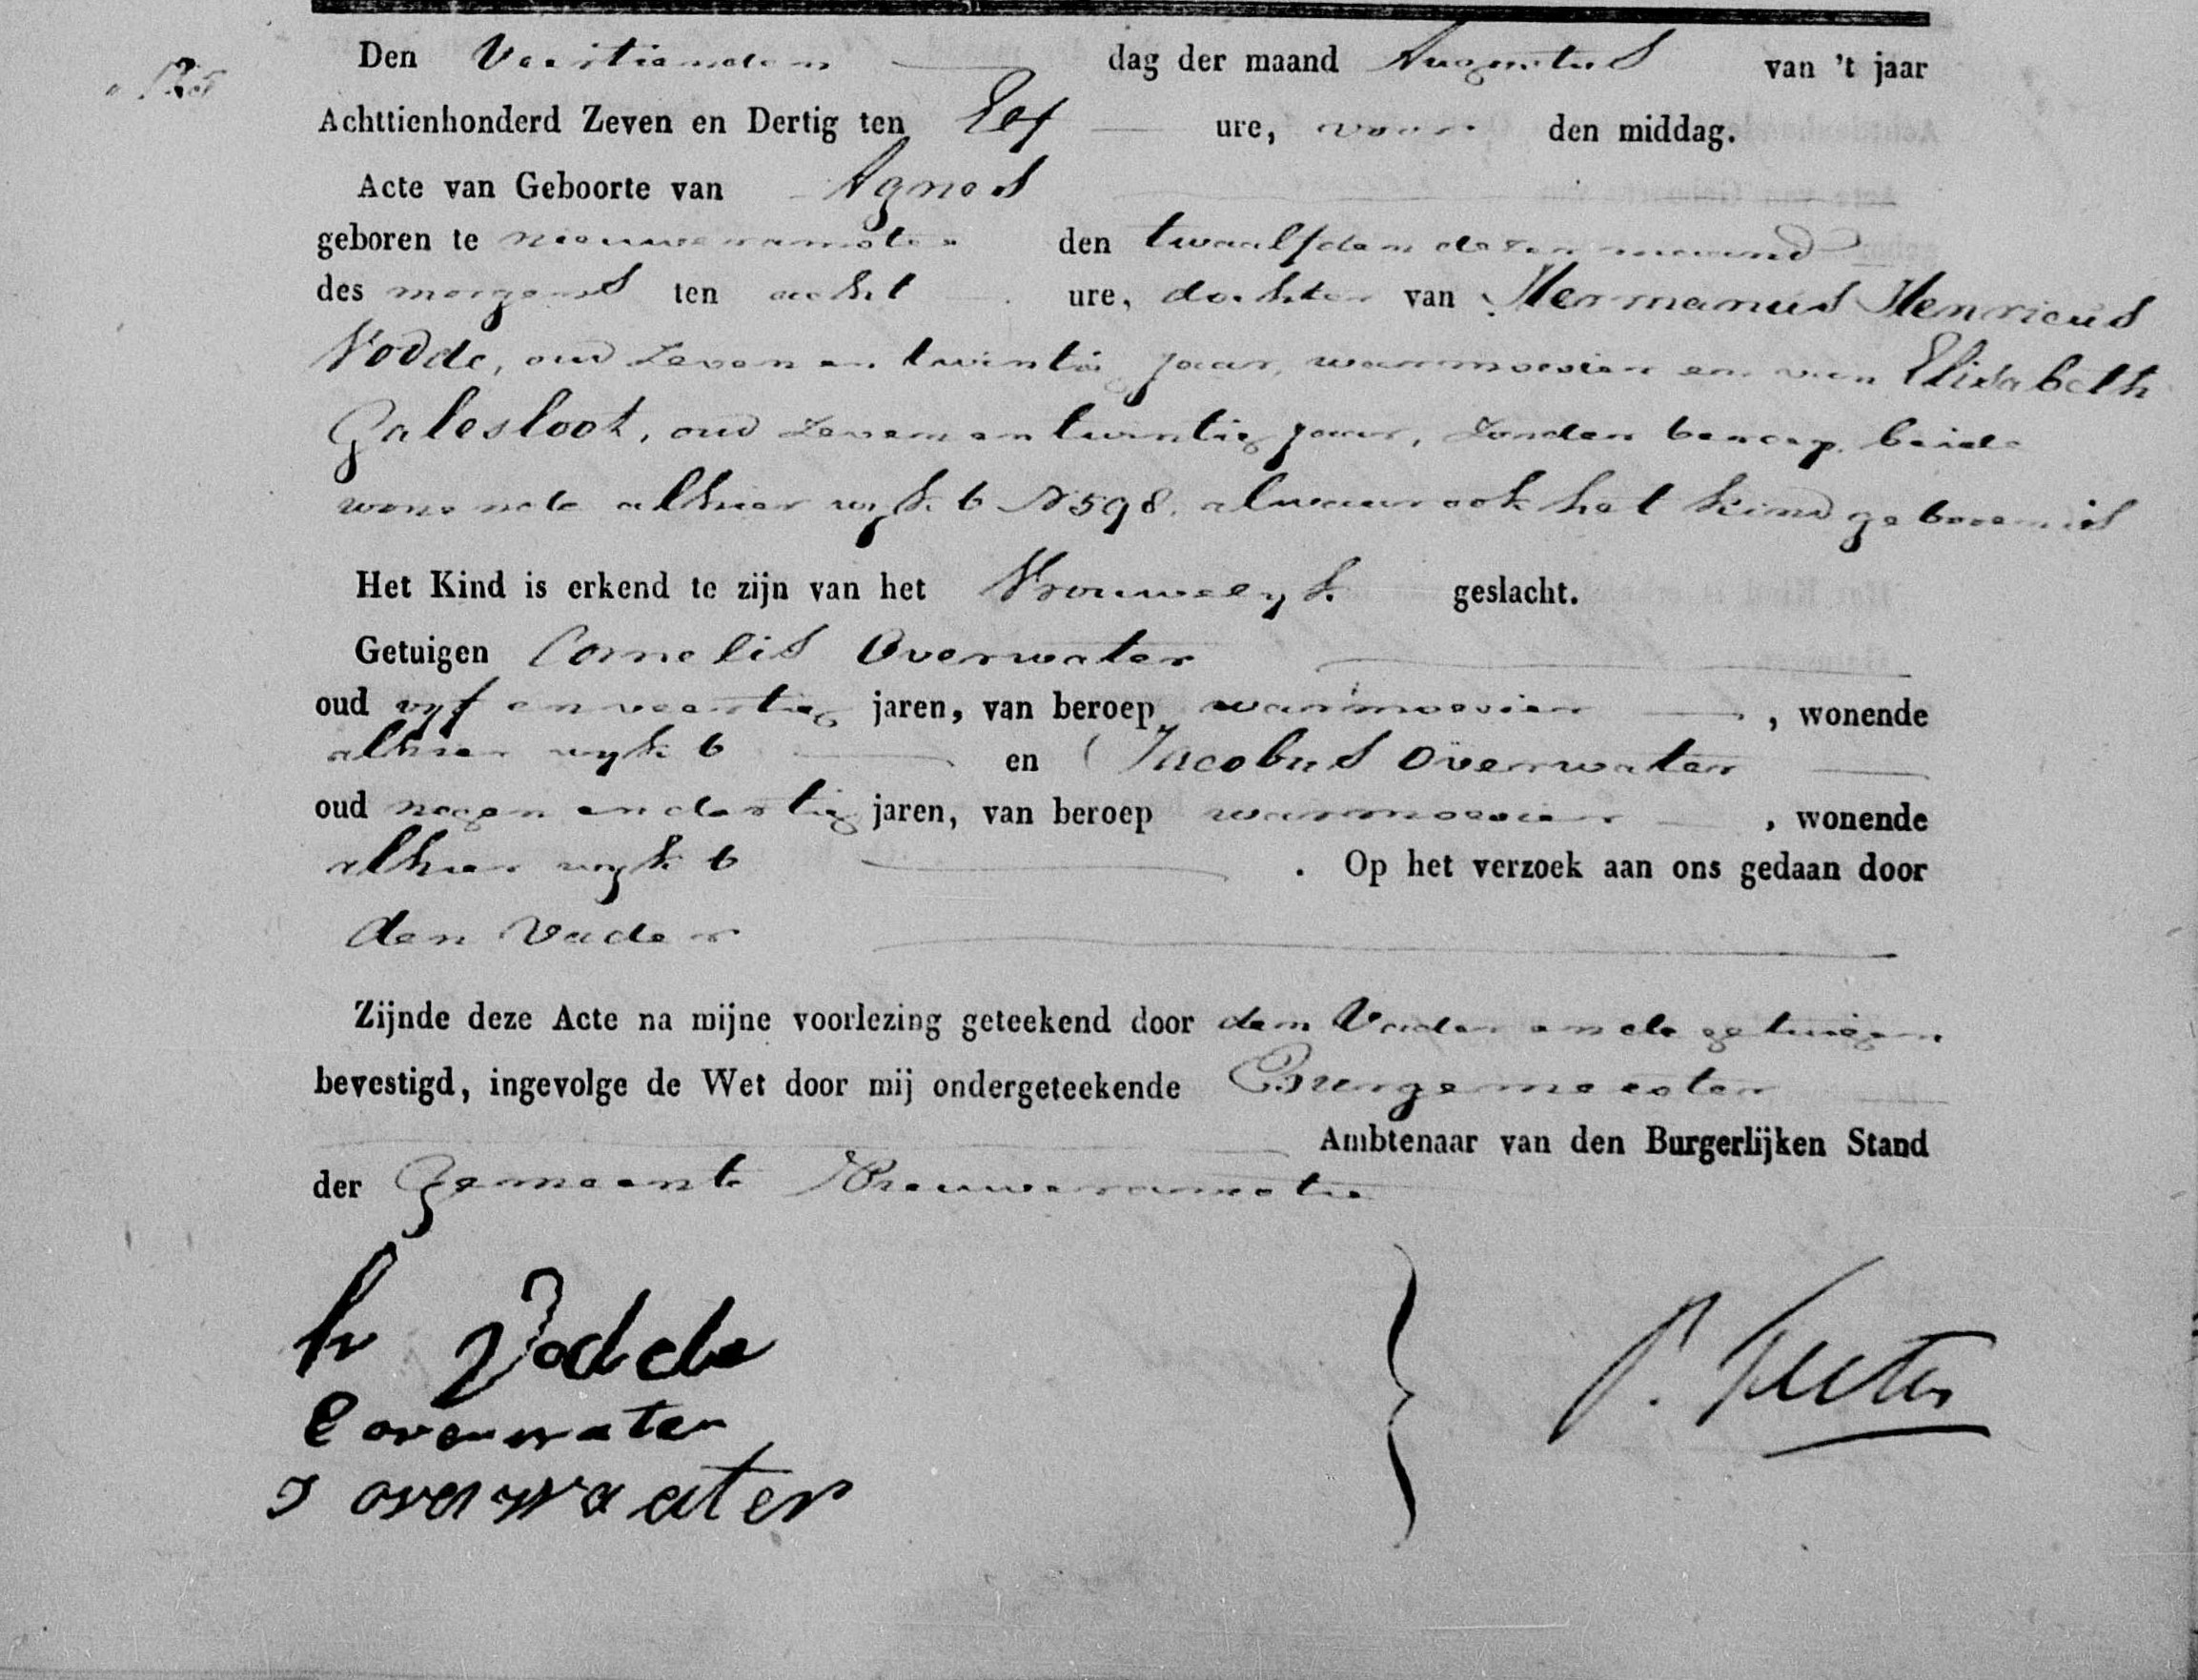 125
Den Veertienden dag der maand Augustus van 't jaar
Achttienhonderd Zeven en Dertig ten Elf ure, voor den middag.
Acte van Geboorte van Agnes
geboren te nieuweramstel den twaalfden dezer maand
des morgens ten acht ure, dochter van Hermanus Henricus
Vodde, oud zeven en twintig jaar, warmoesier en van Elisabeth
Galesloot, oud zeven en twintig jaar, zonder beroep, beide
wonende alhier wyk 6 N 598, alwaar ook het kind geboren is
Het Kind is erkend te zijn van het Vrouwelyk geslacht.
Getuigen Cornelis Overwater
oud vyf en veertig jaren, van beroep warmoesier, wonende
alhier wyk 6 en Jacobus Overwater
oud negen en dertig jaren, van beroep warmoesier, wonende
alhier wyk 6. Op het verzoek aan ons gedaan door
den Vader
Zijnde deze Acte na mijne voorlezing geteekend door den Vader en de getuigen
bevestigd, ingevolge de Wet door mij ondergeteekende Burgemeester
Ambtenaar van den Burgerlijken Stand
der Gemeente Nieuweramstel
h Vodde
C overwater
J overwaater